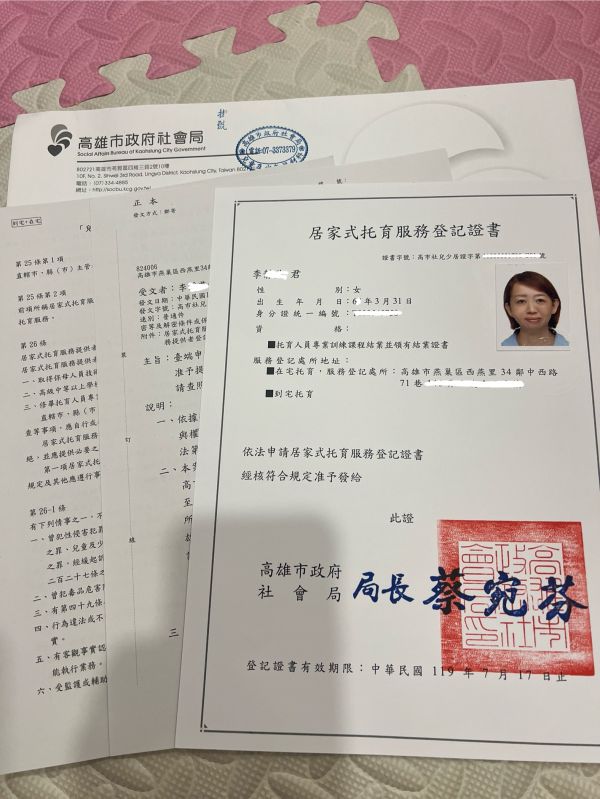 掛號
高雄市政府社會局
Social Affairs Bureau of Kaohsiung City Government
802721高雄市苓雅區四維三路2號10樓
10F, No. 2, Sihwei 3rd Road, Lingya District, Kaohsiung City, Taiwan 80272
電話：(07) 334-4885
網址：http://socbu.kcg.gov.tw/
高雄市政府社會局
電話:07-3373379
到宅+在宅
第 25 條第 1 項
直轄市、縣（市）主管
第 25 條第 2 項
前項所稱居家式托育服
托育服務。
第 26 條
居家式托育服務提供者
居家式托育服務提供者
一、取得保母人員技術
二、高級中等以上學校
三、修畢托育人員專
直轄市、縣（市
查等事項，應自行或
居家式托育服務
絕，並應提供必要之
第一項居家式托
規定及其他應遵行事
第 26-1 條
有下列情事之一，不
一、曾犯性侵害犯罪
之罪、兒童及少
之罪，經緩起訴
二百二十七條之
二、曾犯毒品危害
三、有第四十九條
四、行為違法或不
實。
五、有客觀事實認
能執行業務。
六、受監護或輔助
正 本
發文方式：郵寄
824006
高雄市燕巢區西燕里34鄰
受文者：李
發文日期：中華民國
發文字號：高市社兒
速別：普通件
密等及解密條件或保
附件：居家式托育服
務提供者登
主旨：臺端申
准予提
請查照
說明：
一、依據
與權
法第
二、本
高
至
所
三
裝
訂
線
居家式托育服務登記證書
證書字號：高市社兒少居證字第 號
李 君
性 別：女
出生年月日：6 年3月31日
身分證統一編號：
資 格：
■托育人員專業訓練課程結業並領有結業證書
服務登記處所地址：
■在宅托育，服務登記處所：高雄市燕巢區西燕里34鄰中西路
71巷
■到宅托育
依法申請居家式托育服務登記證書
經核符合規定准予發給
此證
高雄市政府
社會局 局長 蔡宛芬
高雄市政府社會局印
登記證書有效期限：中華民國 119 年 7 月 17 日止